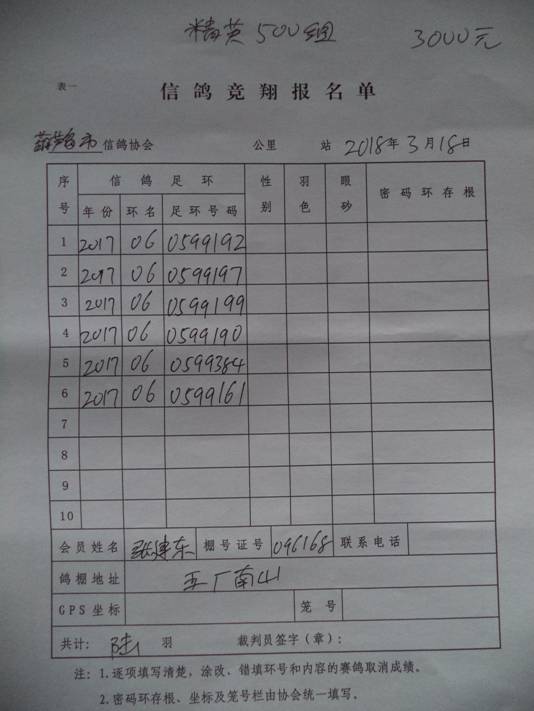 精英500组 3000元
表一
信鸽竞翔报名单
葫芦岛市信鸽协会 公里 站 2018年3月18日
序号 信鸽足环 性别 羽色 眼砂 密码环存根
年份 环名 足环号码
1 2017 06 0599192
2 2017 06 0599197
3 2017 06 0599199
4 2017 06 0599190
5 2017 06 0599384
6 2017 06 0599161
7
8
9
10
会员姓名 张建东 棚号证号 096168 联系电话
鸽棚地址 五厂南山
GPS坐标 笼号
共计：陆 羽 裁判员签字（章）：
注：1.逐项填写清楚，涂改、错填环号和内容的赛鸽取消成绩。
2.密码环存根、坐标及笼号栏由协会统一填写。